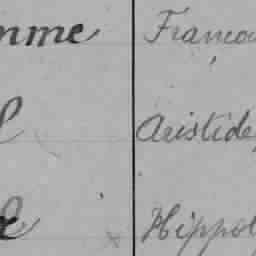 mme Franco
Aristide
Hippol